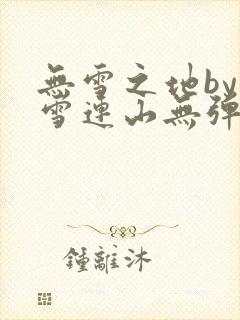 無雪之地by
雪連山無彈
鍾離沐